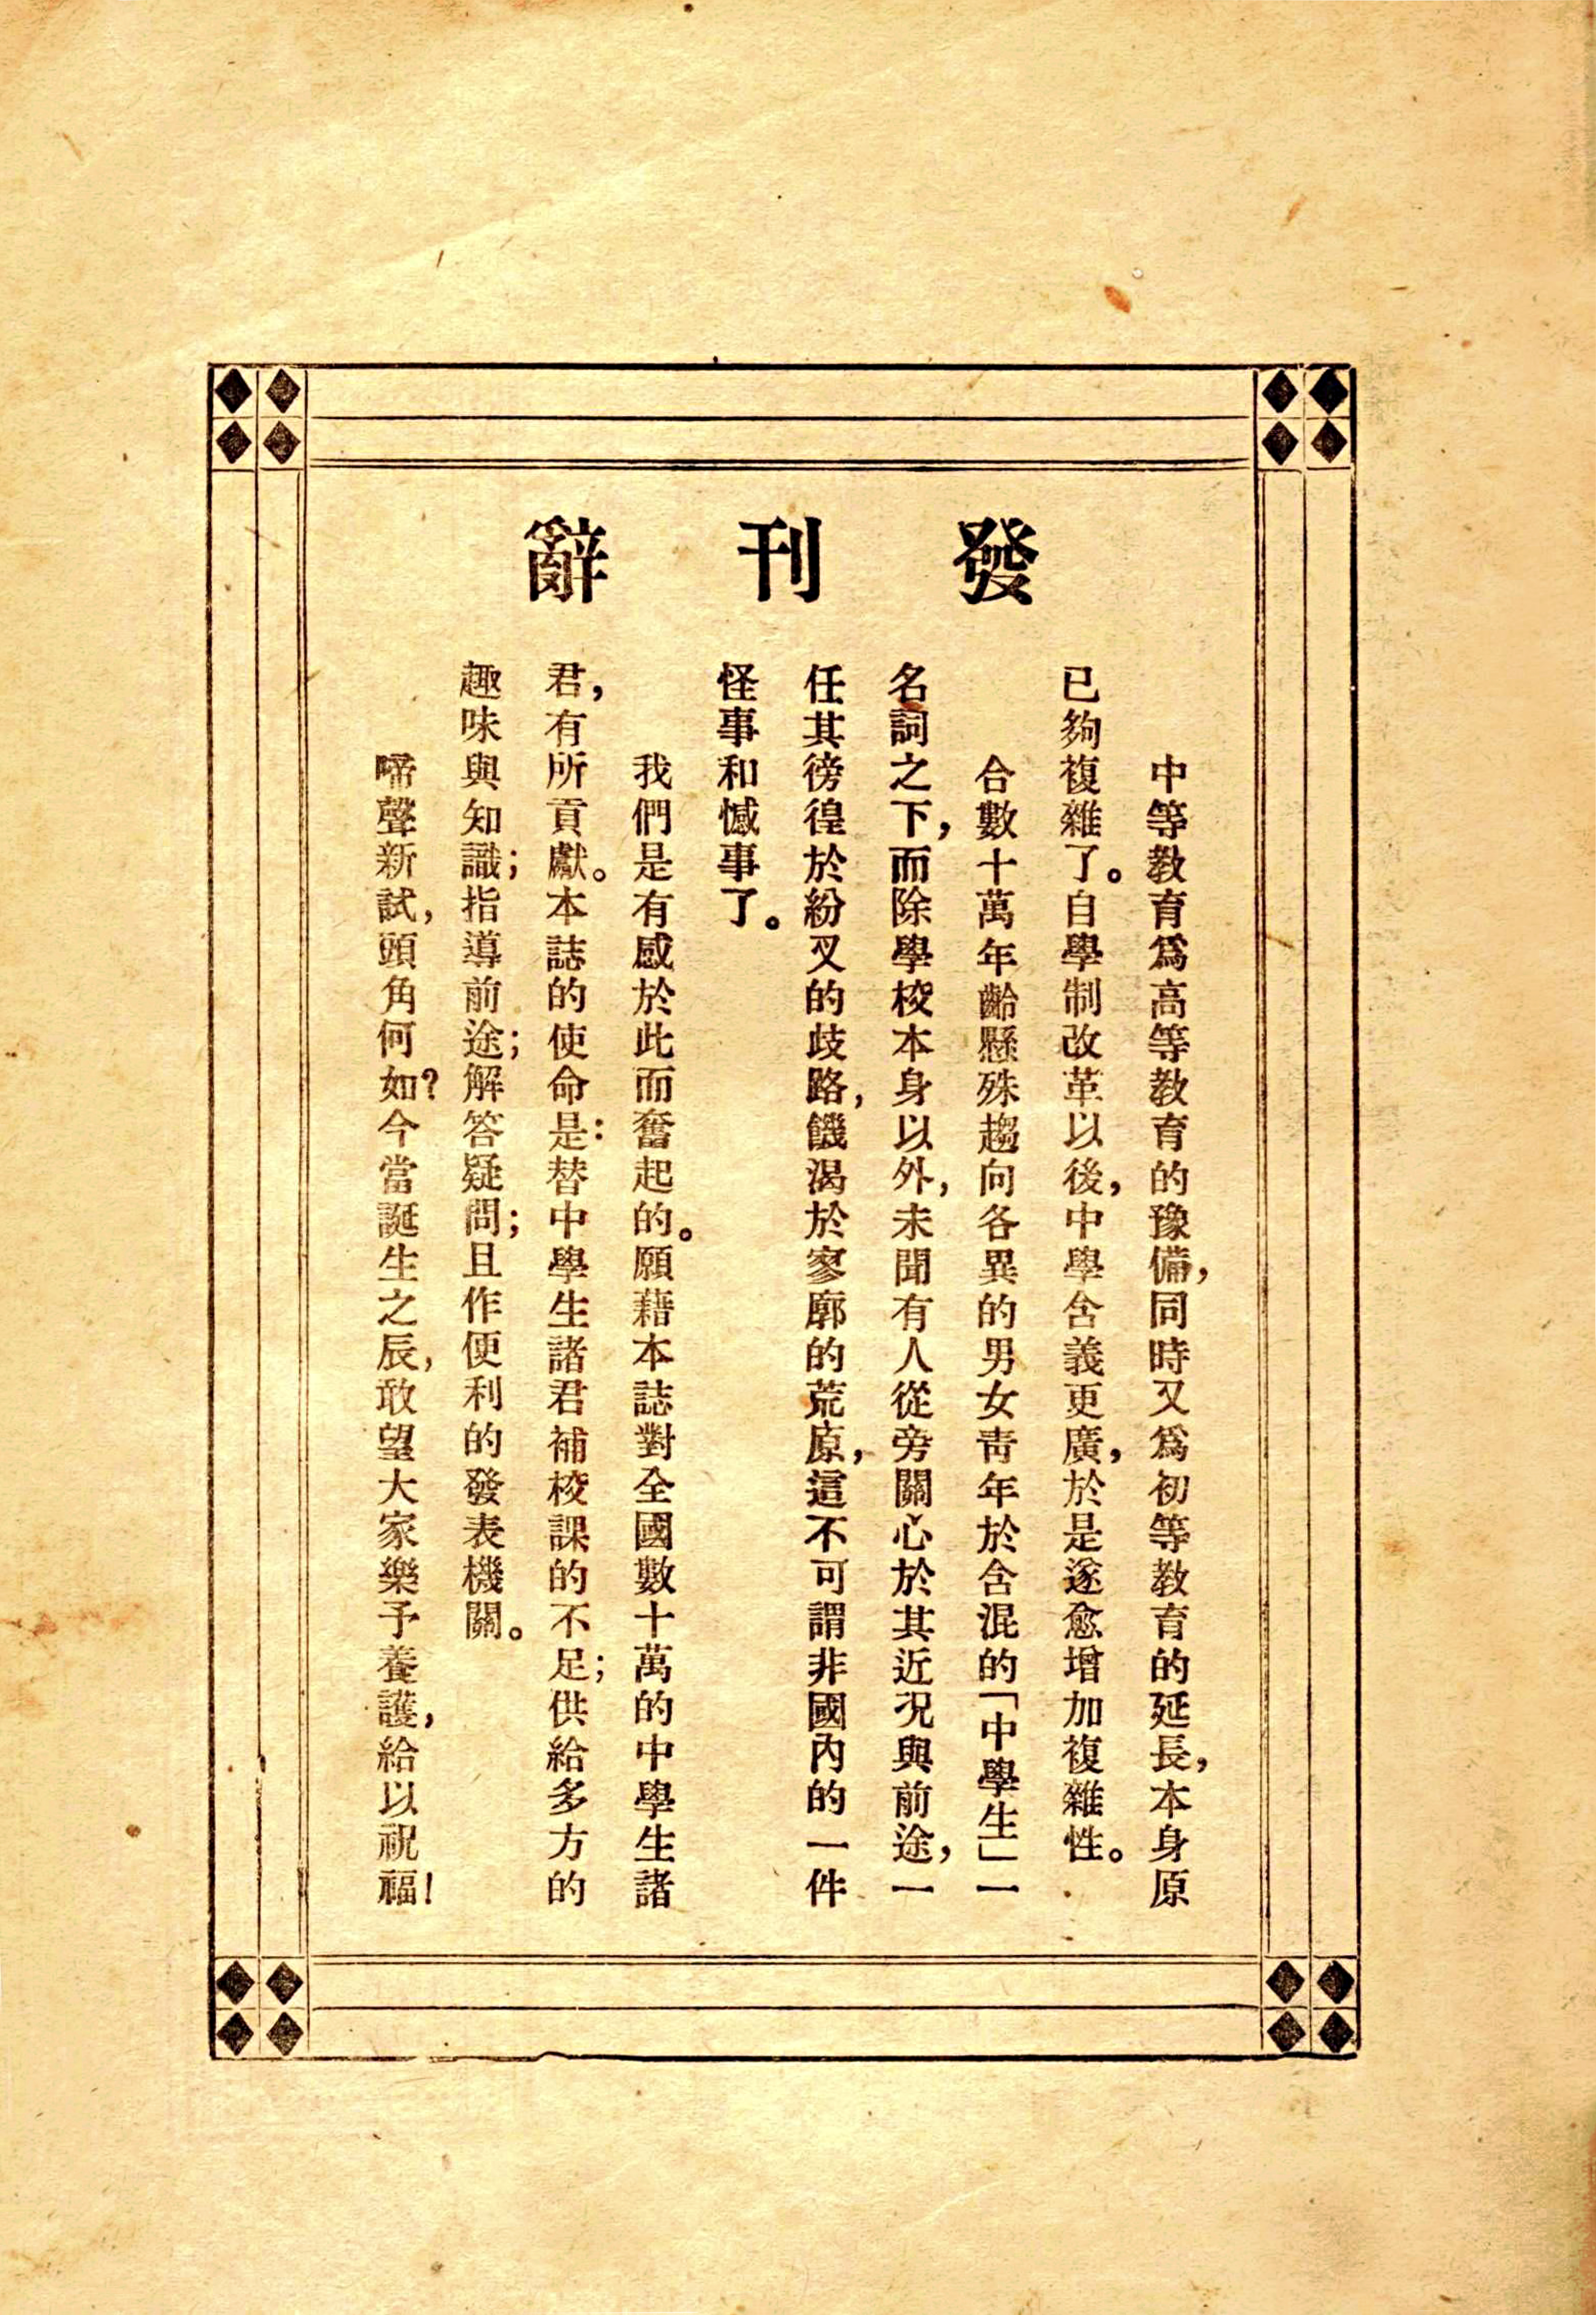 發刊辭
中等教育爲高等教育的豫備，同時又爲初等教育的延長，本身原
已夠複雜了。自學制改革以後，中學含義更廣，於是遂愈增加複雜性。
合數十萬年齡懸殊趨向各異的男女靑年於含混的「中學生」一
名詞之下，而除學校本身以外，未聞有人從旁關心於其近況與前途，一
任其徬徨於紛叉的歧路，饑渴於寥廓的荒原，這不可謂非國內的一件
怪事和憾事了。
我們是有感於此而奮起的。願藉本誌對全國數十萬的中學生諸
君，有所貢獻。本誌的使命是：替中學生諸君補校課的不足；供給多方的
趣味與知識；指導前途；解答疑問；且作便利的發表機關。
啼聲新試，頭角何如？今當誕生之辰，敢望大家樂予養護，給以祝福！